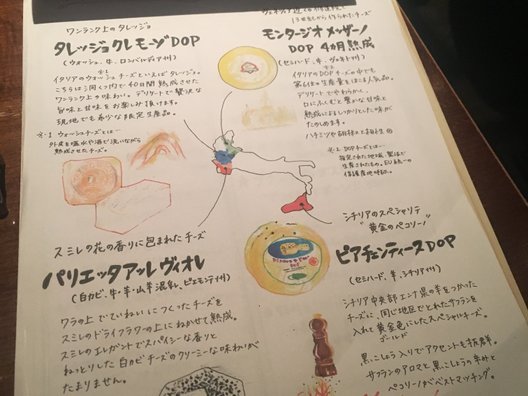 ワンランク上のタレッジョ
タレッジョクレモーゾDOP
(ウォッシュ、牛、ロンバルディア州)
イタリアのウォッシュチーズといえばタレッジョ。
こちらは洞くつ内で40日間熟成させた
ワンランク上の味わい。デリケートで贅沢な
旨味と甘味をお楽しみ頂けます。
現地でも希少な限定生産品。
※1 ウォッシュチーズとは…
外皮を塩水や酒で洗いながら
熟成させたチーズ。
13世紀から作られたチーズ
モンタージオ メッザーノ
DOP 4カ月熟成
(セミハード、牛、ヴェネト州)
イタリアのDOPチーズの中でも
第6位の生産量をほこる人気品。
デリケートでやわらかく、
口にふくむと豊かな甘味と
熟成によるしっかりとした味が
たのしめます。
ハチミツや
※2 DOPとは…
指定された地域、製法で
生産されたもの。EU統一の
保護原産地呼称。
スミレの花の香りに包まれたチーズ
パリエッタアッレヴィオレ
(白カビ、牛・羊・山羊混乳、ピエモンテ州)
ワラの上でていねいにつくったチーズを
スミレのドライフラワーの上にねかせて熟成。
スミレのエレガントでスパイシーな香りと
ねっとりした白カビチーズのクリーミーな味わいが
たまりません。
シチリアのスペシャリテ
"黄金のペコリーノ"
ピアチェンティーヌDOP
(セミハード、羊、シチリア州)
シチリア中央部エンナ県の羊をつかった
チーズに、同じ地区でとれたサフランを
入れて黄金色にしたスペシャルチーズ。
ゴールド
黒こしょう入りでアクセントも抜群。
サフランのアロマと黒こしょうの辛みと
ペコリーノがベストマッチング。